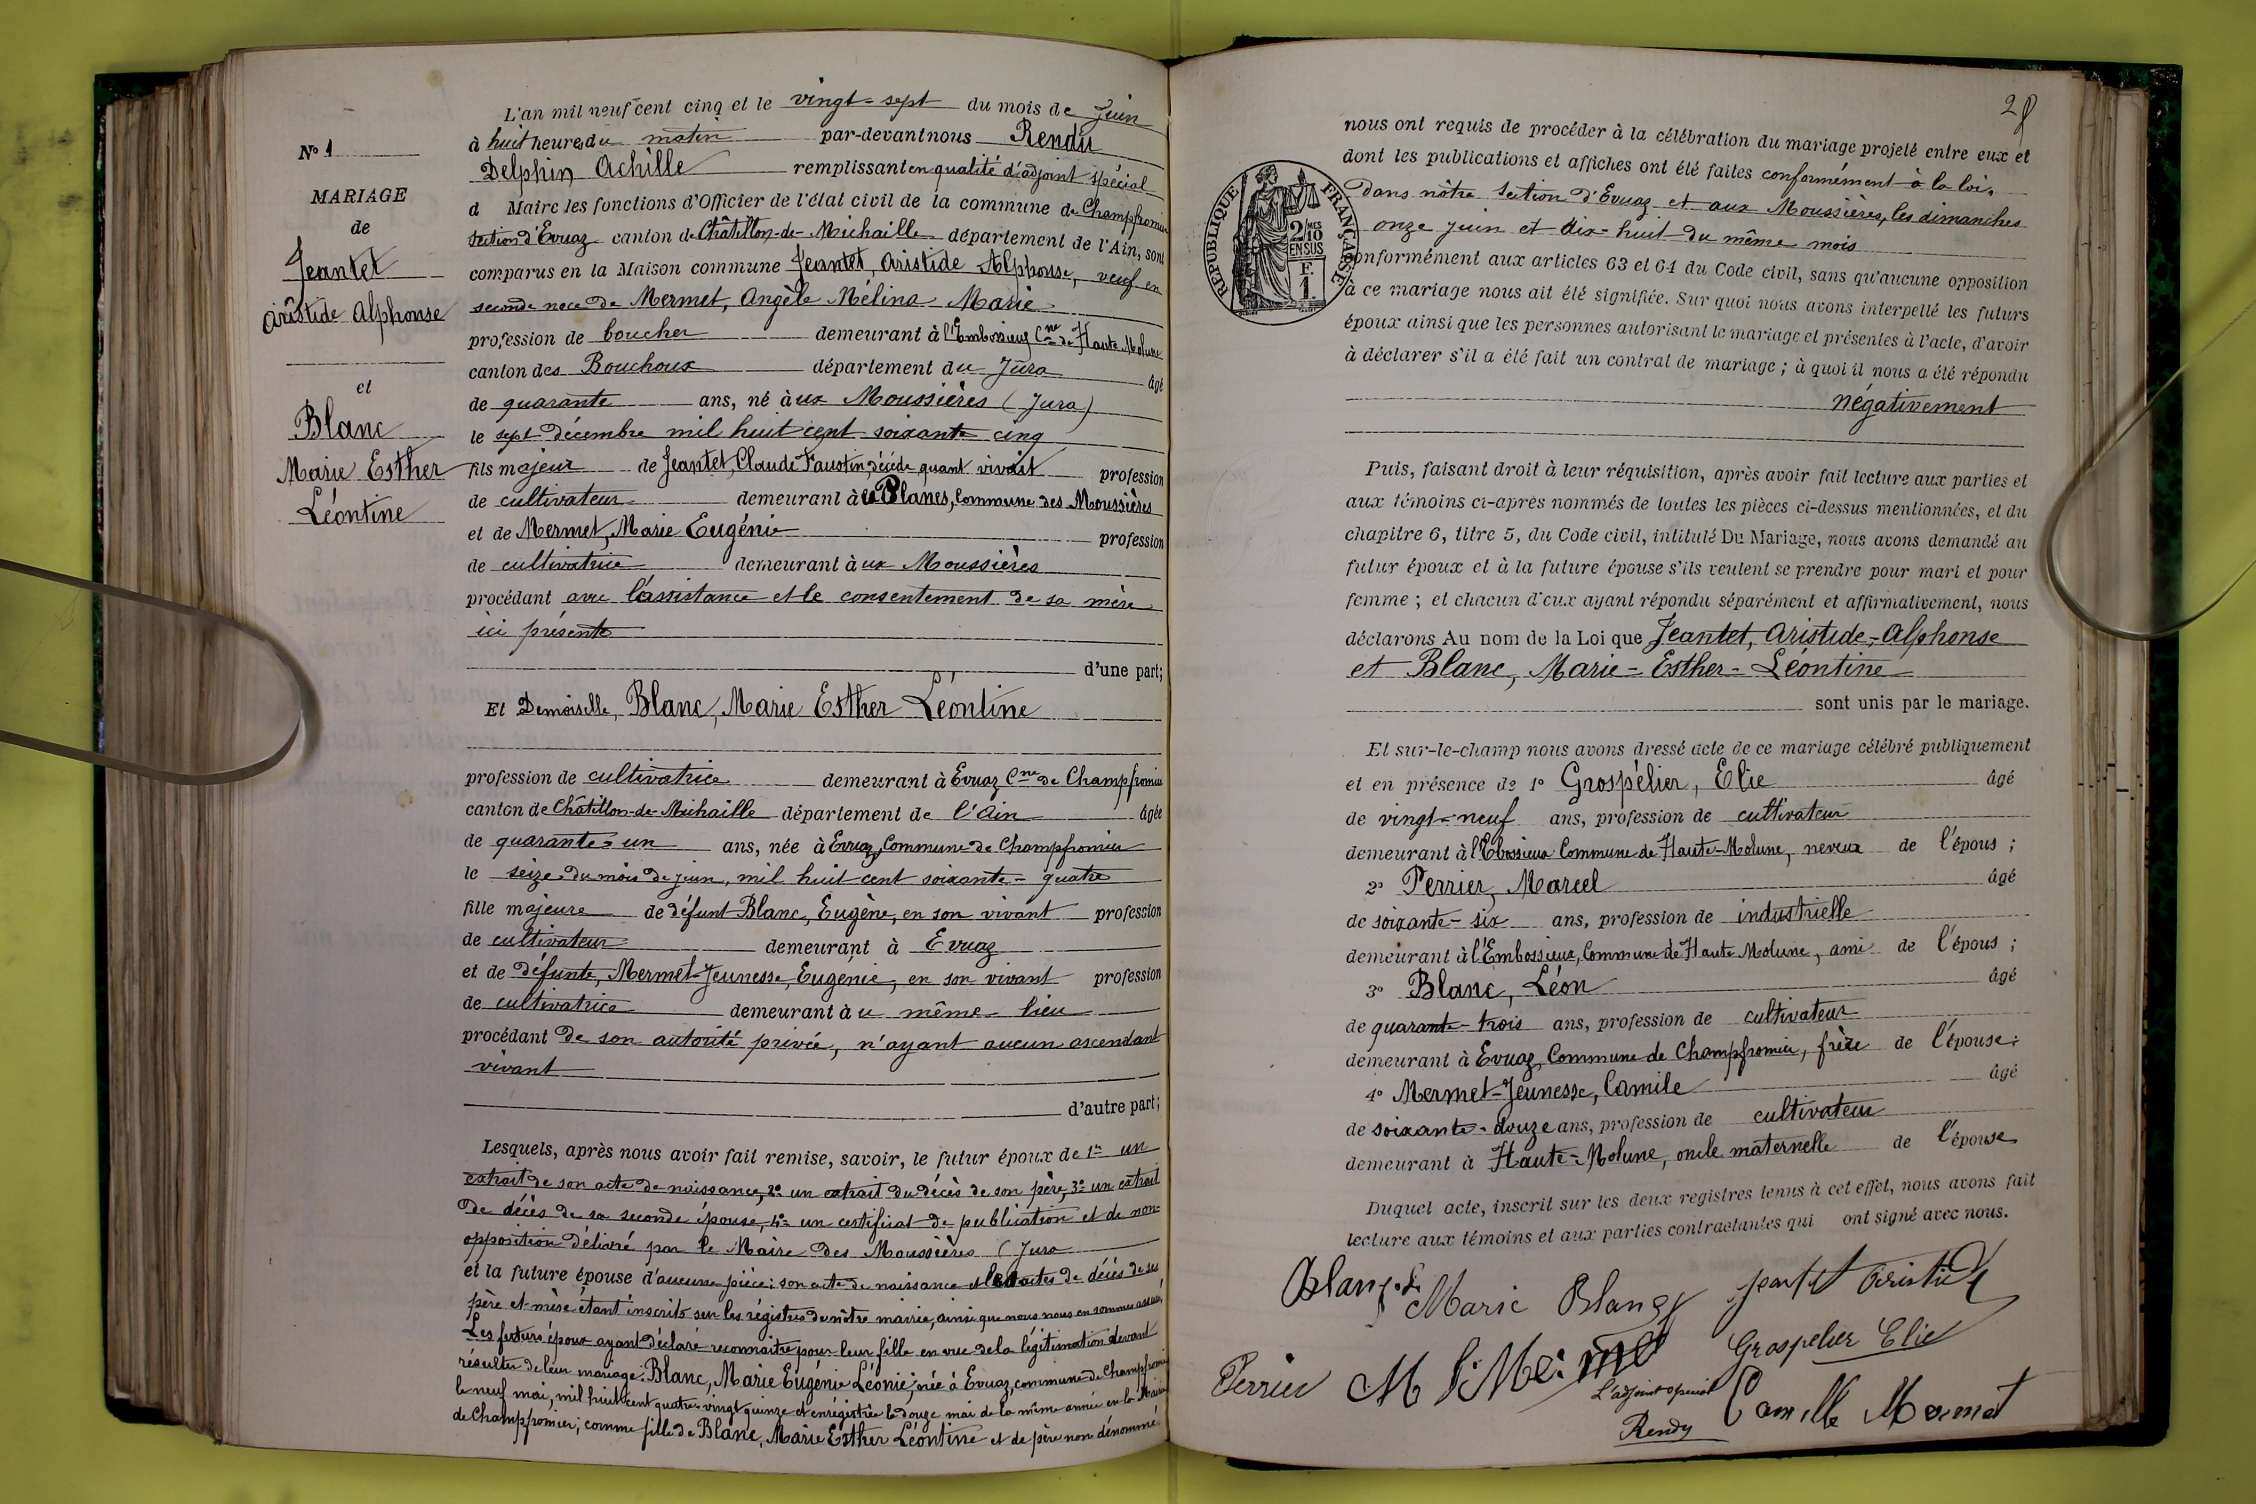 N° 1
MARIAGE
de
Jeantet
Aristide Alphonse
et
Blanc
Marie Esther
Léontine
L'an mil neuf cent cinq et le vingt-sept du mois de Juin
à huit heures du matin par-devant nous Rendu
Delphin Achille remplissant en qualité d'adjoint spécial
d Maire les fonctions d'Officier de l'état civil de la commune de Champfromier
section d'Evuaz canton de Châtillon-de-Michaille département de l'Ain, sont
comparus en la Maison commune Jeantet, Aristide Alphonse, veuf en
seconde noce de Mermet, Angèle Mélina Marie
profession de boucher demeurant à l'Embossieux Cne de Haute Molune
canton des Bouchoux département du Jura âgé
de quarante ans, né à ux Moussières (Jura)
le sept décembre mil huit cent soixante cinq
fils majeur de Jeantet, Claude Faustin, décédé quant vivait profession
de cultivateur demeurant à Planes, Commune des Moussières
et de Mermet, Marie Eugénie profession
de cultivatrice demeurant à ux Moussières
procédant avec l'assistance et le consentement de sa mère
ici présente
d'une part;
Et Demoiselle, Blanc, Marie Esther Léontine
profession de cultivatrice demeurant à Evuaz Cne de Champfromier
canton de Châtillon-de-Michaille département de l'Ain âgée
de quarante-un ans, née à Evuaz, Commune de Champfromier
le seize du mois de juin, mil huit cent soixante-quatre
fille majeure de défunt Blanc, Eugène, en son vivant profession
de cultivateur demeurant à Evuaz
et de défunte, Mermet-Jeunesse, Eugénie, en son vivant profession
de cultivatrice demeurant à u même lieu
procédant de son autorité privée, n'ayant aucun ascendant
vivant
d'autre part;
Lesquels, après nous avoir fait remise, savoir, le futur époux de 1° un
extrait de son acte de naissance, 2° un extrait du décès de son père, 3° un extrait
de décès de sa seconde épouse, 4° un certificat de publication et de non-
opposition délivré par le Maire des Moussières (Jura
et la future épouse d'aucune pièce: son acte de naissance et les actes de décès de ses
père et mère étant inscrits sur les régistres de nôtre mairie, ainsi que nous nous en sommes assuré.
Les futurs époux ayant déclaré reconnaitre pour leur fille en vue de la légitimation devant
résulter de leur mariage: Blanc, Marie Eugénie Léonie, née à Evuaz, commune de Champfromier
le neuf mai, mil huit cent quatre-vingt quinze et enrégistrée le douze mai de la même année en la Mairie
de Champfromier; comme fille de Blanc, Marie Esther Léontine et de père non dénommé
28
RÉPUBLIQUE FRANÇAISE
2/10 MES
EN SUS
F.
1.
nous ont requis de procéder à la célébration du mariage projeté entre eux et
dont les publications et affiches ont été faites conformément à la loi.
Dans nôtre section d'Evuaz et aux Moussières, les dimanches
onze juin et dix-huit du même mois
conformément aux articles 63 et 64 du Code civil, sans qu'aucune opposition
à ce mariage nous ait été signifiée. Sur quoi nous avons interpellé les futurs
époux ainsi que les personnes autorisant le mariage et présentes à l'acte, d'avoir
à déclarer s'il a été fait un contrat de mariage; à quoi il nous a été répondu
négativement
Puis, faisant droit à leur réquisition, après avoir fait lecture aux parties et
aux témoins ci-après nommés de toutes les pièces ci-dessus mentionnées, et du
chapitre 6, titre 5, du Code civil, intitulé Du Mariage, nous avons demandé au
futur époux et à la future épouse s'ils veulent se prendre pour mari et pour
femme; et chacun d'eux ayant répondu séparément et affirmativement, nous
déclarons Au nom de la Loi que Jeantet, Aristide-Alphonse
et Blanc, Marie-Esther-Léontine
sont unis par le mariage.
Et sur-le-champ nous avons dressé acte de ce mariage célébré publiquement
et en présence de 1° Grospélier, Elie âgé
de vingt-neuf ans, profession de cultivateur
demeurant à Commune de Haute-Molune, neveux de l'épous;
2° Perrier, Marcel âgé
de soixante-six ans, profession de industrielle
demeurant à l'Embossieux, Commune de Haute Molune, ami de l'épous;
3° Blanc, Léon âgé
de quarante-trois ans, profession de cultivateur
demeurant à Evuaz, Commune de Champfromier, frère de l'épouse;
4° Mermet-Jeunesse, Camile âgé
de soixante-douze ans, profession de cultivateur
demeurant à Haute-Molune, oncle maternelle de l'épouse
Duquel acte, inscrit sur les deux registres tenus à cet effet, nous avons fait
lecture aux témoins et aux parties contractantes qui ont signé avec nous.
Blanc L Marie Blanc Jeantet Aristide
Grospelier Elie
Perrier
L'adjoint spécial
Rendu
Camille Mermet